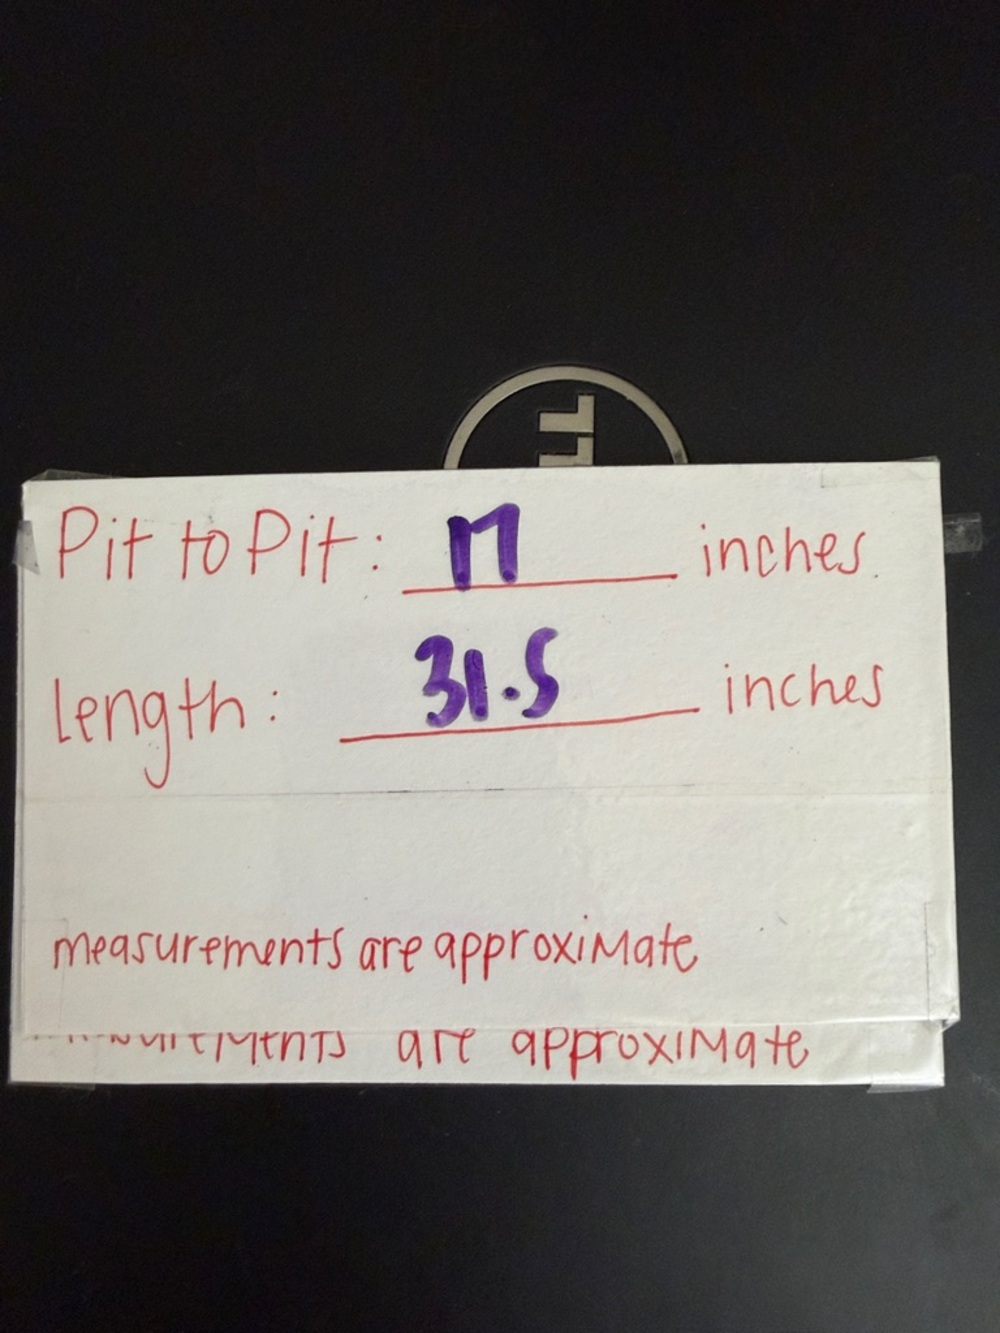 Pit to Pit: 17 inches
length: 31.5 inches
measurements are approximate
are approximate